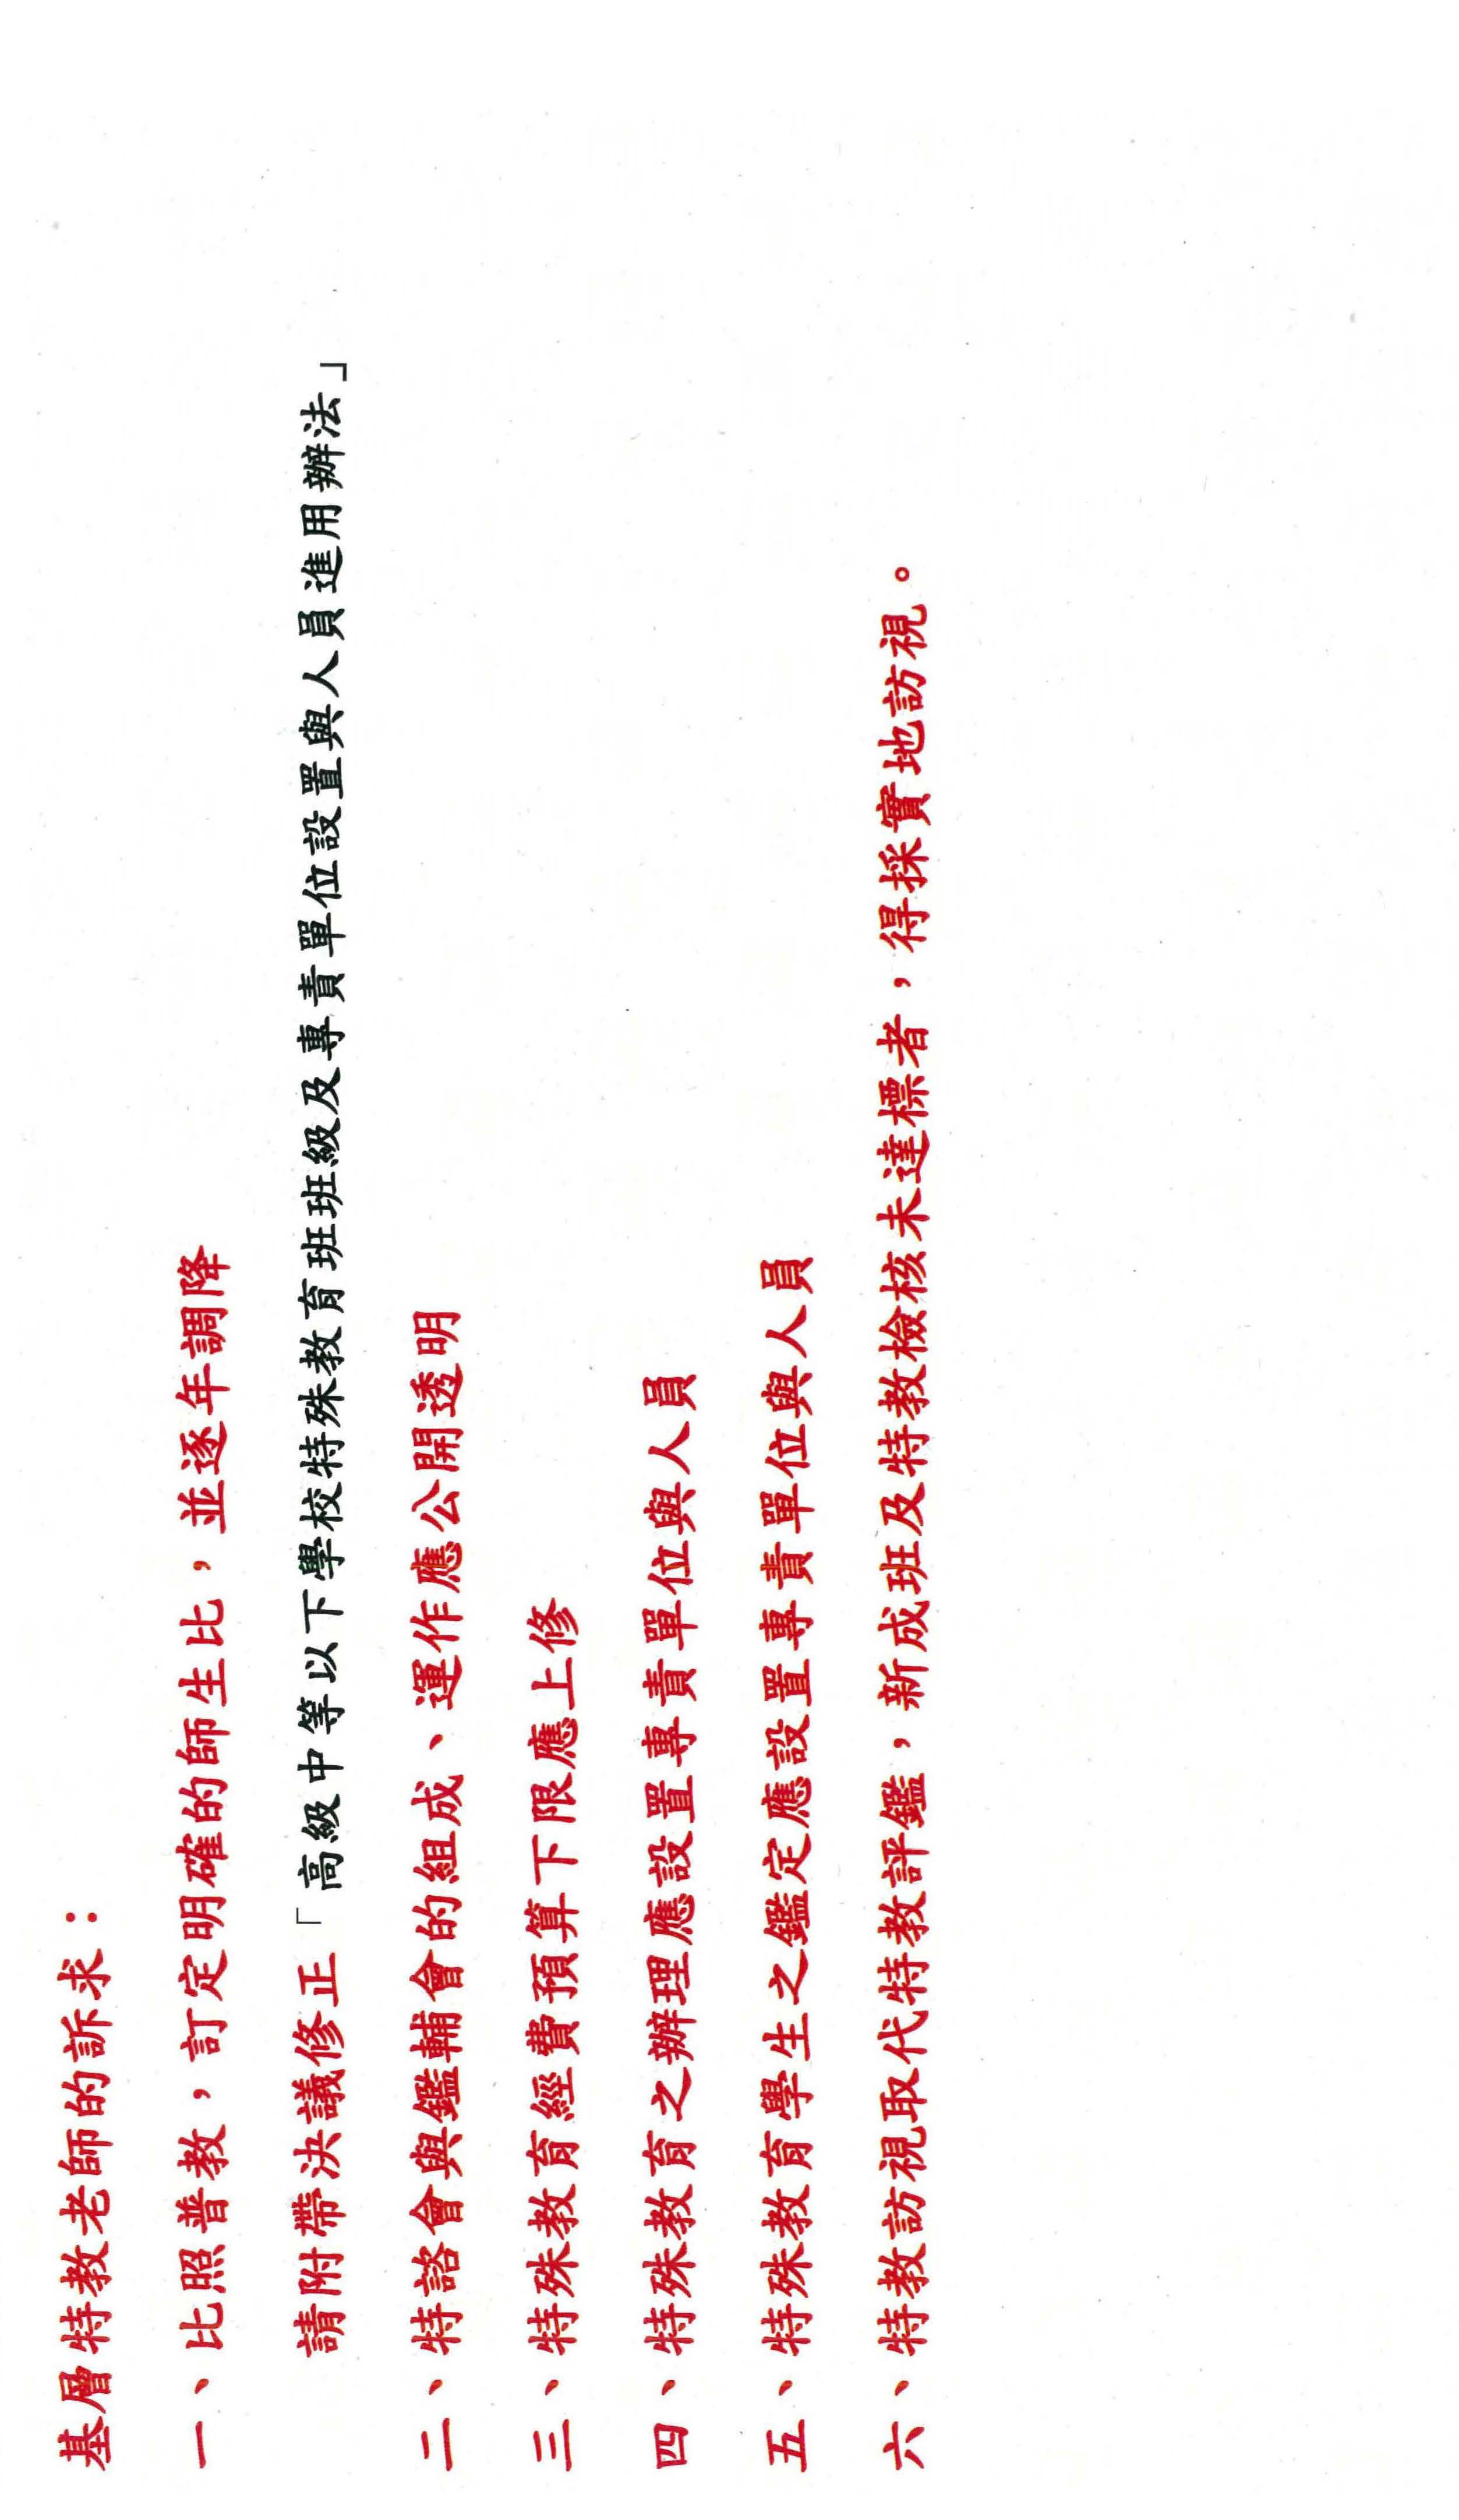 基層特教老師的訴求：
一、比照普教，訂定明確的師生比，並逐年調降
請附帶決議修正「高級中等以下學校特殊教育班班級及專責單位設置與人員進用辦法」
二、特諮會與鑑輔會的組成、運作應公開透明
三、特殊教育經費預算下限應上修
四、特殊教育之辦理應設置專責單位與人員
五、特殊教育學生之鑑定應設置專責單位與人員
六、特教訪視取代特教評鑑，新成班及特教檢核未達標者，得採實地訪視。